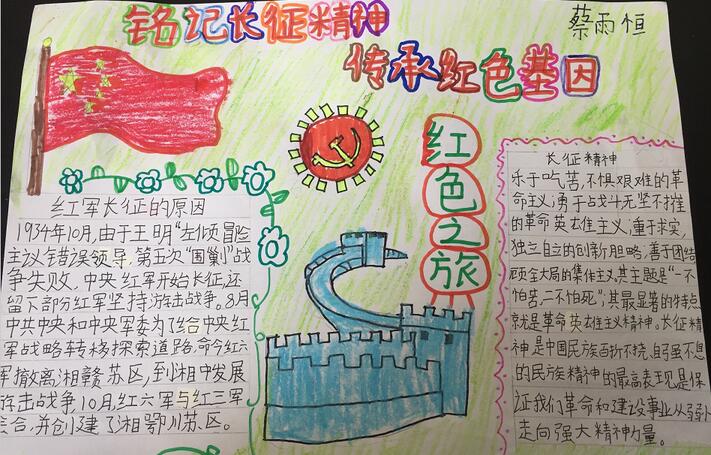 铭记长征精神
蔡雨恒
传承红色基因
红色之旅
红军长征的原因
1934年10月,由于王明“左倾冒险
主义错误领导,第五次“围剿”战
争失败,中央红军开始长征,还
留下部分红军坚持游击战争。8月
中共中央和中央军委为了给中央红
军战略转移探索道路,命令红六
军撤离湘赣苏区,到湘中发展
游击战争10月,红六军与红三军
会合,并创建了湘鄂川苏区。
长征精神
乐于吃苦,不惧艰难的革
命主义;勇于战斗无坚不摧
的革命英雄主义;重于求实,
独立自立的创新胆略;善于团结
顾全大局的集体主义。其主题是“一不
怕苦,二不怕死”,其最显著的特点
就是革命英雄主义精神。长征精
神是中国民族百折不挠,自强不息
的民族精神的最高表现是保
证我们革命和建设事业从弱小
走向强大精神力量。